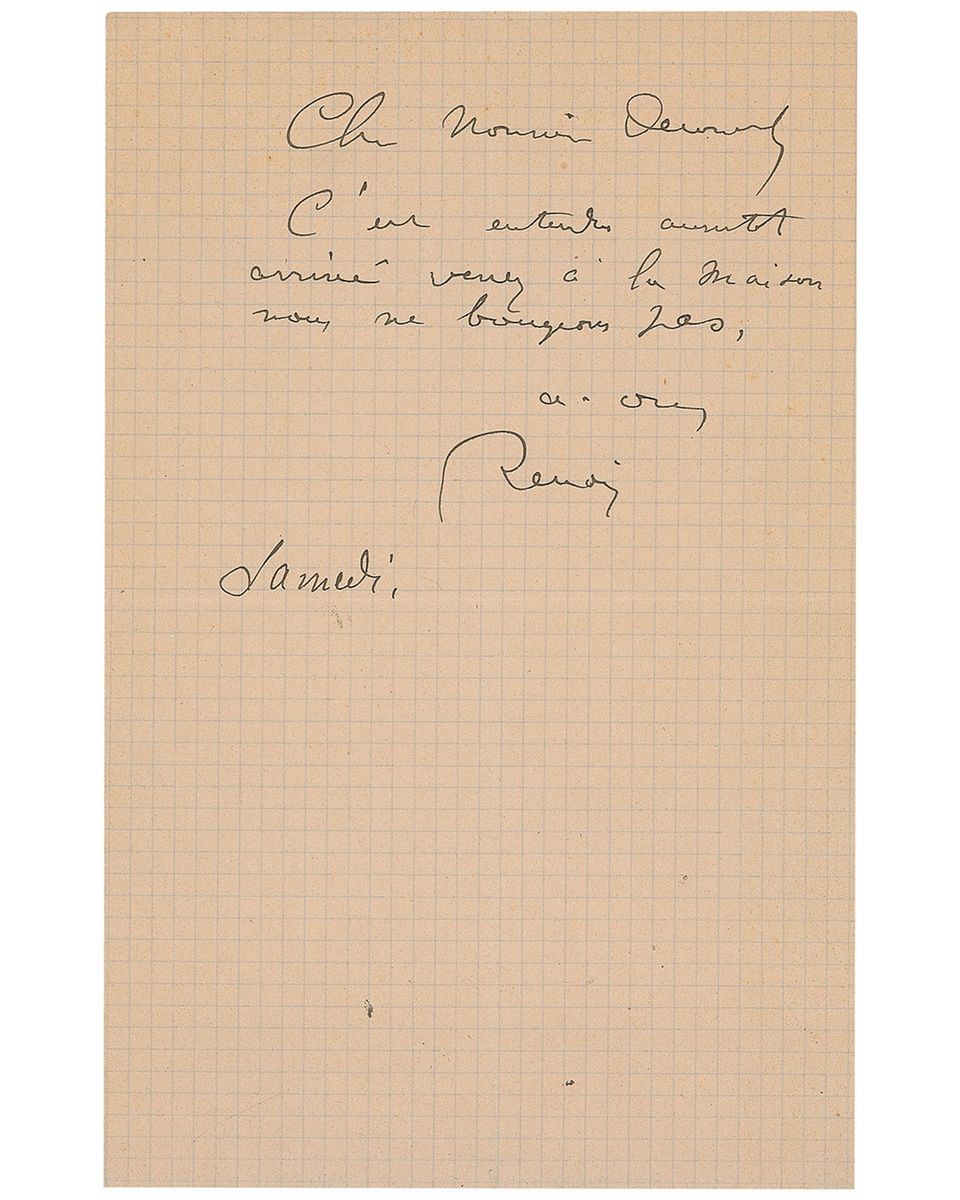 Cher Monsieur
C'est entendu aussitôt
arrivé venez à la maison
nous ne bougeons pas,
a. vous
Renoir
Samedi,